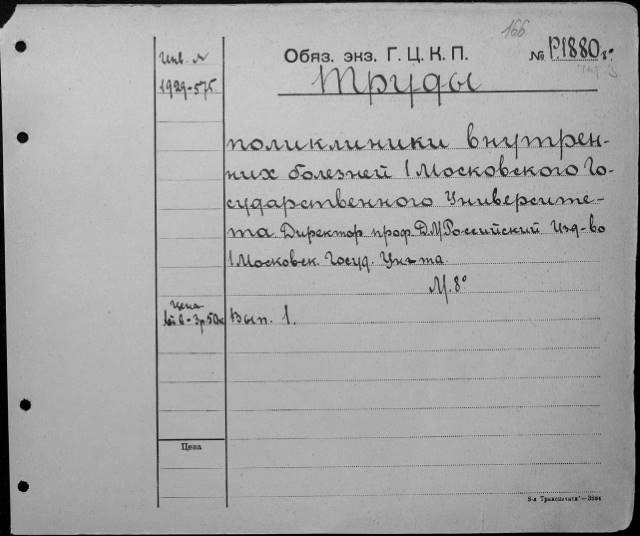 166
Инв. №
Обяз. экз. Г. Ц. К. П.
№ Р1880 8°
1929-575
Труды
поликлиники внутрен-
них болезней 1 Московского Го-
сударственного Университе-
та Директор проф. Д.М.Российский Изд-во
1 Московск. Госуд. Ун-та
М. 8°
Цена
в. 1 - 3р50к
Вып. 1.
Цена
3604